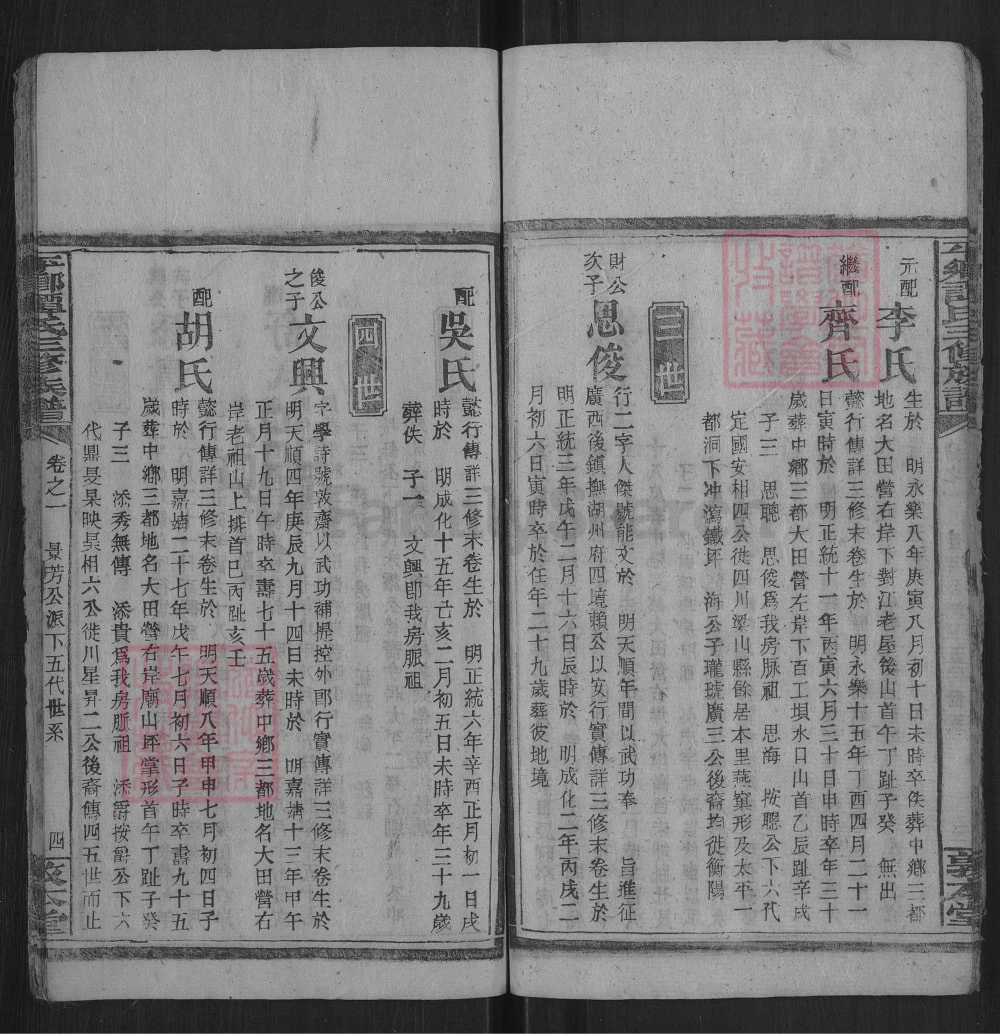 元配
李氏
生於　明永樂八年庚寅八月初十日未時卒佚葬中鄉三都
地名大田營右岸下對江老屋後山首午丁趾子癸　無出
繼配
齊氏
懿行傳詳三修末卷生於　明永樂十五年丁酉四月二十一
日寅時於　明正統十一年丙寅六月三十日申時卒年三十
歲葬中鄉三都大田營左岸下百工垻水口山首乙辰趾辛戌
子三　思聰　思俊爲我房脈祖　思海　按聰公下六代
定國安相四公徙四川梁山縣餘居本里燕窠形及太平一
都洞下冲瀉鐵坪　海公子瓏琥廣三公後裔均徙衡陽
三世
財公
次子
思俊
行二字人傑號能文於　明天順年間以武功奉　旨進征
廣西後鎮撫湖州府四境賴公以安行實傳詳三修末卷生於
明正統三年戊午二月十六日辰時於　明成化二年丙戌二
月初六日寅時卒於任年二十九歲葬彼地境
配
吳氏
懿行傳詳三修末卷生於　明正統六年辛酉正月初一日戌
時於　明成化十五年亡亥二月初五日未時卒年三十九歲
葬佚　子一　文興卽我房脈祖
四世
俊公
之子
文興
字學詩號敦齋以武功補掾控外郡行實傳詳三修末卷生於
明天順四年庚辰九月十四日未時於　明嘉靖十三年甲午
正月十九日午時卒壽七十五歲葬中鄉三都地名大田營右
岸老祖山上排首巳丙趾亥壬
配
胡氏
懿行傳詳三修末卷生於　明天順八年甲申七月初四日子
時於　明嘉靖二十七年戊午七月初六日子時卒壽九十五
歲葬中鄉三都地名大田營右岸廟山坪掌形首午丁趾子癸
子三　添秀無傳　添貴爲我房脈祖　添爵按爵公下六
代鼎旻杲映昊相六公徙川星昇二公後裔傳四五世而止
氏三修族譜
卷之一
景芳公派下五代世系
四
敦本堂